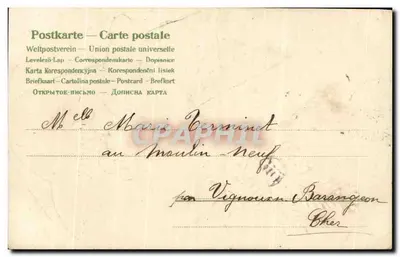 Postkarte — Carte postale
Weltpostverein — Union postale universelle
Levelező-Lap — Correspondenskarte — Dopisnice
Karta Korespondencyjna — Korespondenční lístek
Briefkaart — Cartolina postale — Postcard — Brefkort
Открытое письмо — Дописна карта
Melle Marie Terminet
au Moulin-Neuf
par Vignoux Barangeon
Cher
CPAPHIL